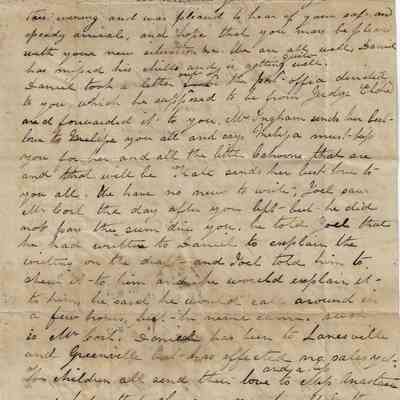 this evening and was pleased to hear of your safe and
speedy arrival, and hope that you may be pleased
with your new situation. We are all well, Daniel
has missed his chills and is getting quite well.
Daniel took a letter out of the post-office directed
to you, which he supposed to be from Judge
and forwarded it to you. Mr Ingham sends his best
love to you all and says must kiss
you for her and all the little that are
and that will be. Kate sends her best love to
you all. We have no news to write; Joel saw
Mr the day after you left but he did
not pay the sum due you. he told Joel that
he had written to Daniel to explain the
writing on the draft and Joel told him to
show it to him and he would explain it
to him, he said he would call around in
a few hours, but he never came.
is Mr Daniel has been to Lanesville
and Greenville but has effected no sales yet.
The children all send their love and a kiss to Miss Anastasia